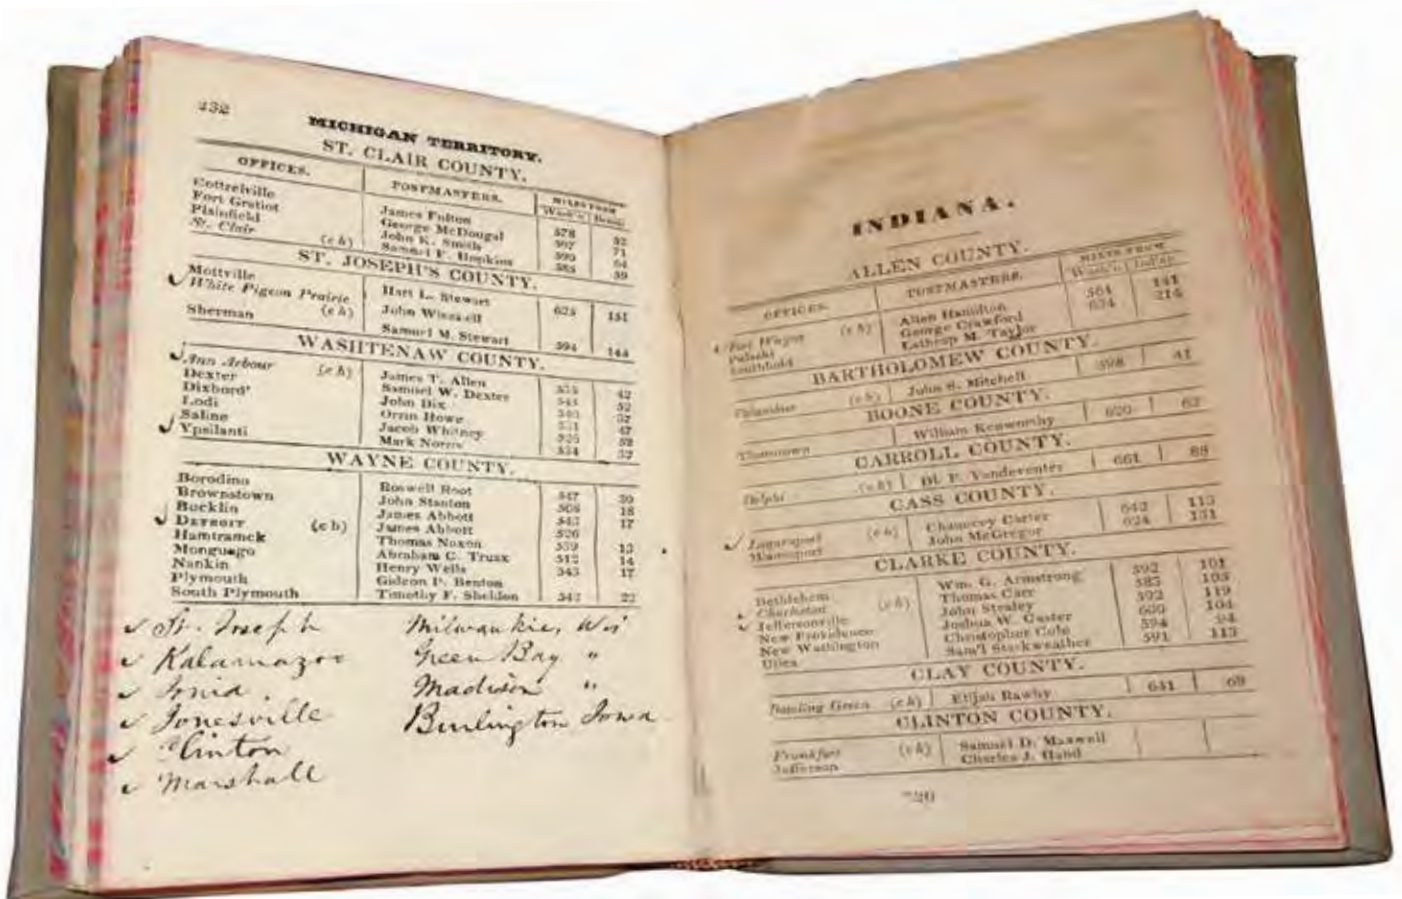 432
MICHIGAN TERRITORY.
ST. CLAIR COUNTY.
OFFICES. POSTMASTERS. MILES FROM
Wash'n
Cottrelville James Fulton 578 52
Fort Gratiot George McDougal 597 71
Plainfield John K. Smith 590 64
St. Clair (c h) Samuel F. Hopkins 585 59
ST. JOSEPH'S COUNTY.
Mottville Hart L. Stewart
White Pigeon Prairie (c h) John Winchell 625 151
Sherman Samuel M. Stewart 594 144
WASHTENAW COUNTY.
Ann Arbour (c h) James T. Allen 42
Dexter Samuel W. Dexter 52
Dixboro' John Dix
Lodi Orrin Howe 47
Saline Jacob Whitney 52
Ypsilanti Mark Norris
WAYNE COUNTY.
Borodino Roswell Root 547 20
Brownstown John Stanton 508 18
Bucklin James Abbott 543 17
DETROIT (c h) James Abbott 526
Hamtramck Thomas Noxon 539 13
Monguago Abraham C. Truax 512 14
Nankin Henry Wells 543 17
Plymouth Gideon P. Benton
South Plymouth Timothy F. Sheldon 22
St. Joseph Milwaukie, Wis
Kalamazoo Green Bay "
Ionia. Madison "
Jonesville Burlington Iowa
Clinton
Marshall
INDIANA.
ALLEN COUNTY.
OFFICES. POSTMASTERS. MILES FROM
Wash'n Ind'ap.
Fort Wayne (c h) Allen Hamilton 561 141
Pulaski George Crawford 624 214
Southhold Lathrop M. Taylor
BARTHOLOMEW COUNTY.
Columbus (c h) John S. Mitchell 598 41
BOONE COUNTY.
Thorntown William Kenworthy 620 62
CARROLL COUNTY.
Delphi (c h) Vandeventer 661 88
CASS COUNTY.
Logansport (c h) Chauncey Carter 642 113
John McGregor 624 131
CLARKE COUNTY.
Bethlehem Wm. G. Armstrong 592 101
Charleston (c h) Thomas Carr 585 105
Jeffersonville John Stealey 592 119
New Providence Joshua W. Custer 600 104
New Washington Christopher Cole 594 94
Utica Sam'l Starkweather 591 113
CLAY COUNTY.
Bowling Green (c h) Elijah Rawley 641 69
CLINTON COUNTY.
Frankfort (c h) Samuel D. Maxwell
Jefferson Charles J. Hand